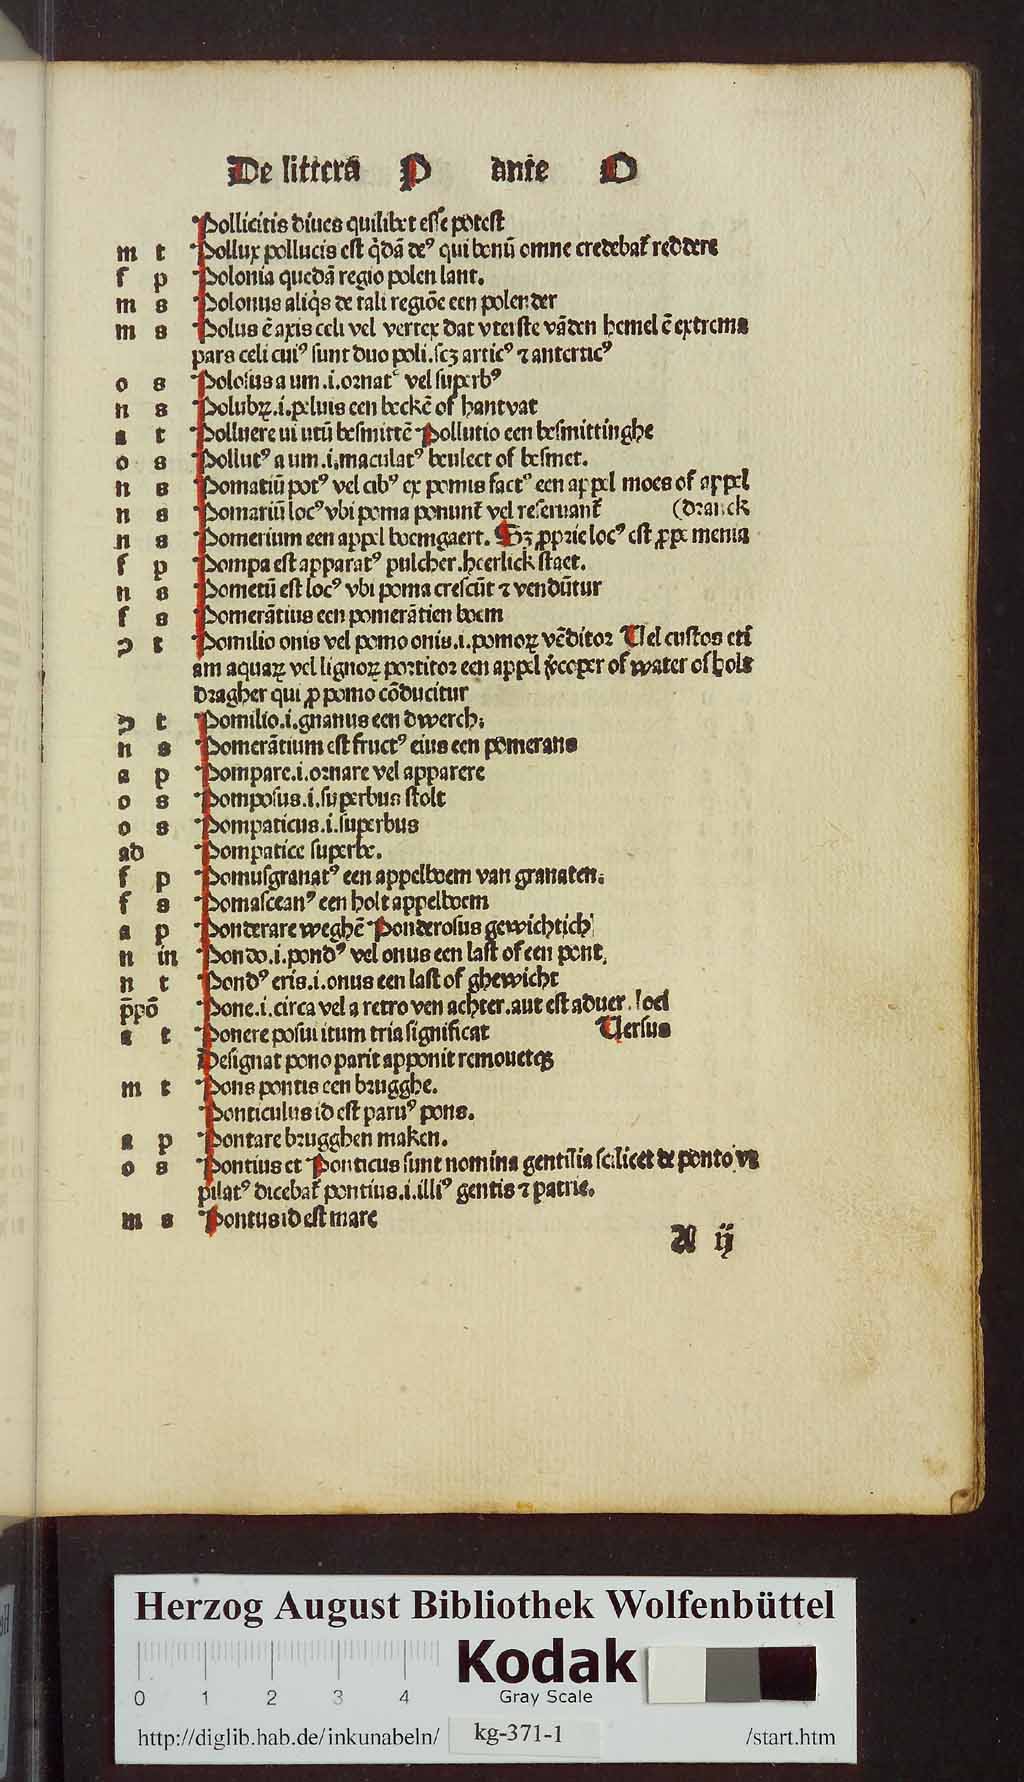 De litterā P ante O
Pollicitis diues quilibet esse potest
m t Pollux pollucis est q̄dā deꝰ qui benū omne credebat̄ reddere
f p Polonia quedā regio polen lant.
m s Polonus aliq̄s de tali regiōe een polender
m s Polus ē axis celi vel vertex dat vterste vāden hemel ē extrema
pars celi cuiꝰ sunt duo poli.scꝫ articꝰ ⁊ antarticꝰ
o s Polosus a um.i.ornatꝰ vel superbꝰ
n s Polubꝝ.i.peluis een beckē of hantvat
a t Polluere ui utū besmittē Pollutio een besmittinghe
o s Pollutꝰ a um.i.maculatꝰ beulect of besmet.
n s Pomatiū potꝰ vel cibꝰ ex pomis factꝰ een appel moes of appel
n s Pomariū locꝰ vbi poma ponunt̄ vel reseruant̄ (dranck
n s Pomerium een appel boemgaert. Sꝫ ꝓprie locꝰ est ꝓpe menia
f p Pompa est apparatꝰ pulcher.heerlick staet.
n s Pometū est locꝰ vbi poma crescūt ⁊ vendūtur
f s Pomerātius een pomerātien boem
ↄ t Pomilio onis vel pomo onis.i.pomoꝝ vēditor Uel custos eti
am aquaꝝ vel lignoꝝ portitor een appel v̄coper of water of hols
dragher qui ꝓ pomo cōducitur
ↄ t Pomilio.i.gnanus een dwerch.
n s Pomerātium est fructꝰ eius een pomerans
a p Pompare.i.ornare vel apparere
o s Pomposus.i.superbus stolt
o s Pompaticus.i.superbus
ad Pompatice superbe.
f p Pomusgranatꝰ een appelboem van granaten.
f s Pomasceanꝰ een holt appelboem
a p Ponderare weghē Ponderosus gewichtich
n in Pondo.i.pondꝰ vel onus een last of een pont.
n t Pondꝰ eris.i.onus een last of ghewicht
p̄pō Pone.i.circa vel a retro ven achter.aut est aduer.loci
a t Ponere posui itum tria significat Uersus
Designat pono parit apponit remouetqꝫ
m t Pons pontis een brugghe.
Ponticulus id est paruꝰ pons.
a p Pontare brugghen maken.
o s Pontius et Ponticus sunt nomina gentilia scilicet de ponto vn
pilatꝰ dicebat̄ pontius.i.illiꝰ gentis ⁊ patrie.
m s Pontus id est mare
A ij
Herzog August Bibliothek Wolfenbüttel
0 1 2 3 4
Kodak
Gray Scale
http://diglib.hab.de/inkunabeln/ kg-371-1 /start.htm